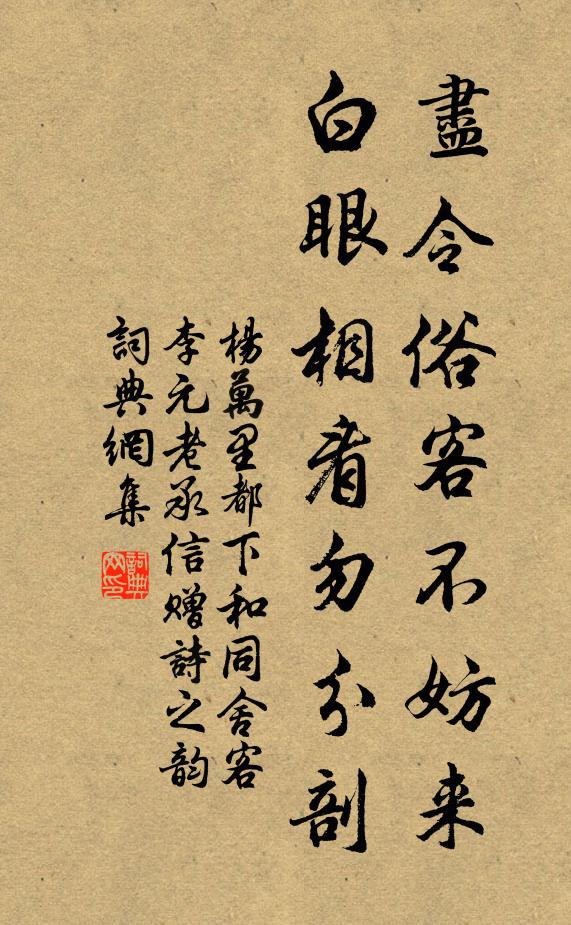 盡令俗客不妨来
白眼相看勿分剖
楊萬里都下和同舍客
李元老承信贈詩之韵
詞典網集
詞典網印